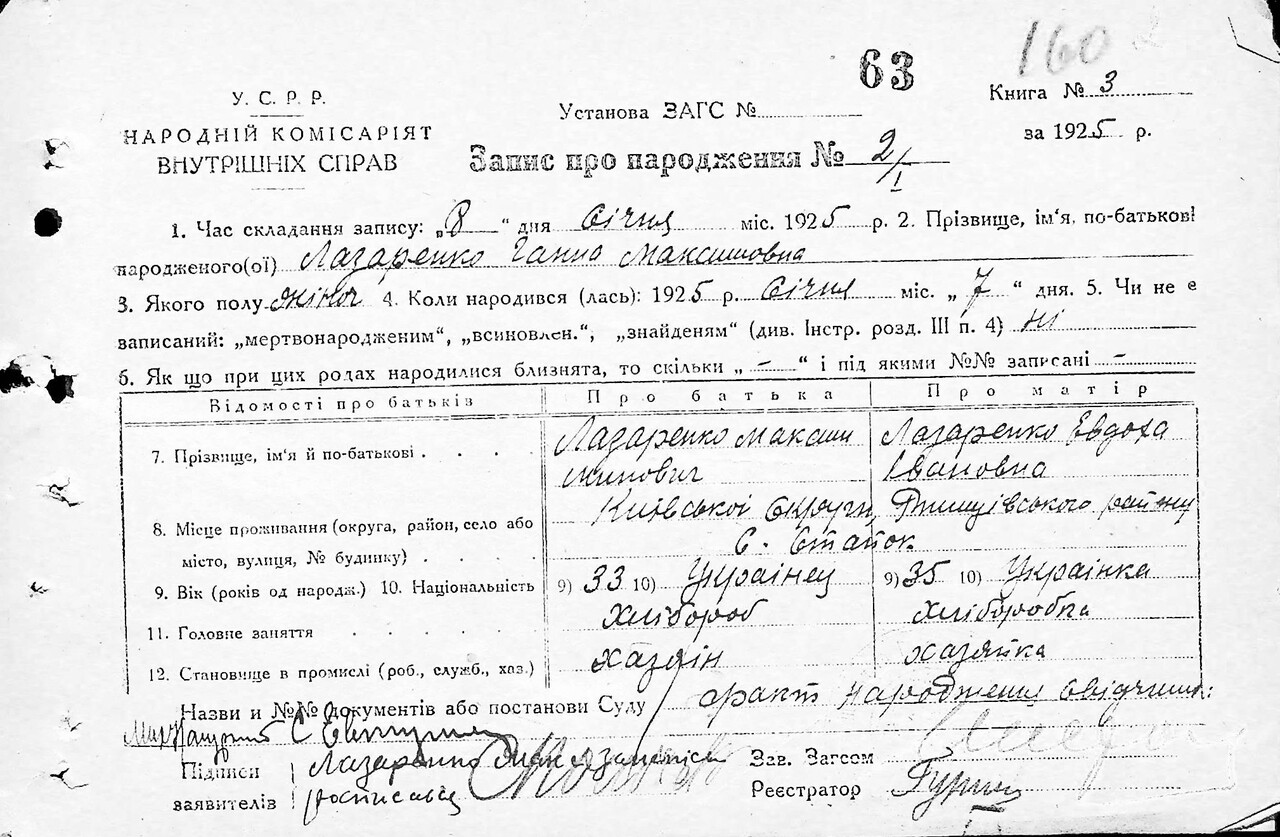 160
63
У. С. Р. Р.
НАРОДНІЙ КОМІСАРІЯТ
ВНУТРІШНІХ СПРАВ
Установа ЗАГС №
Книга № 3
за 1925 р.
Запис про народження № 2/I
1. Час складання запису: „8“ дня Січня міс. 1925 р. 2. Прізвище, ім‘я, по-батькові
народженого(ої) Лазаренко Ганна Максимовна
3. Якого полу жіноч 4. Коли народився (лась): 1925 р. Січня міс. „7“ дня. 5. Чи не є
записаний: „мертвонародженим“, „всиновлен.“, „знайденям“ (див. Інстр. розд. III п. 4) ні
6. Як що при цих родах народилися близнята, то скільки „—“ і під якими №№ записані —
Відомості про батьків Про батька Про матір
7. Прізвище, ім‘я й по-батькові . . . . Лазаренко Максим Лазаренко Евдоха
Івановна
8. Місце проживання (округа, район, село або Київської округи, Ржищівського району
місто, вулиця, № будинку) . . . . С. Стайок
9. Вік (років од народж.) 10. Національність 9) 33 10) Українец 9) 35 10) Українка
11. Головне заняття . . . . . Хлібороб Хліборобка
12. Становище в промислі (роб., служб., хаз.) хазяін хазяйка
Назви и №№ документів або постанови Суду факт народження свідчили:
Підписи Лазаренко
заявителів росписавсь
Зав. Загсом
Реєстратор